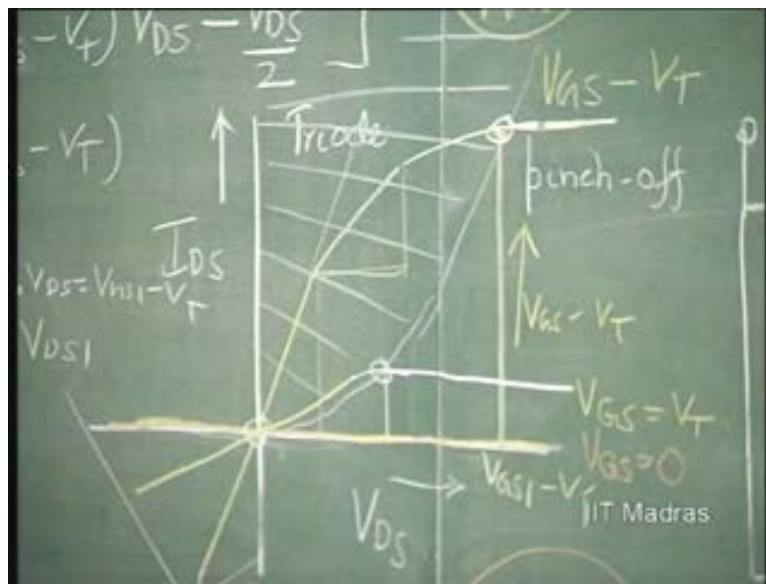 S-V_T) V_DS - V_DS
2
]
V_GS - V_T
Triode
S-V_T)
pinch-off
I_DS
V_DS=V_GS1-V_T
V_GS-V_T
V_DS1
V_GS=V_T
V_GS=0
V_GS1-V_T
V_DS
IIT Madras